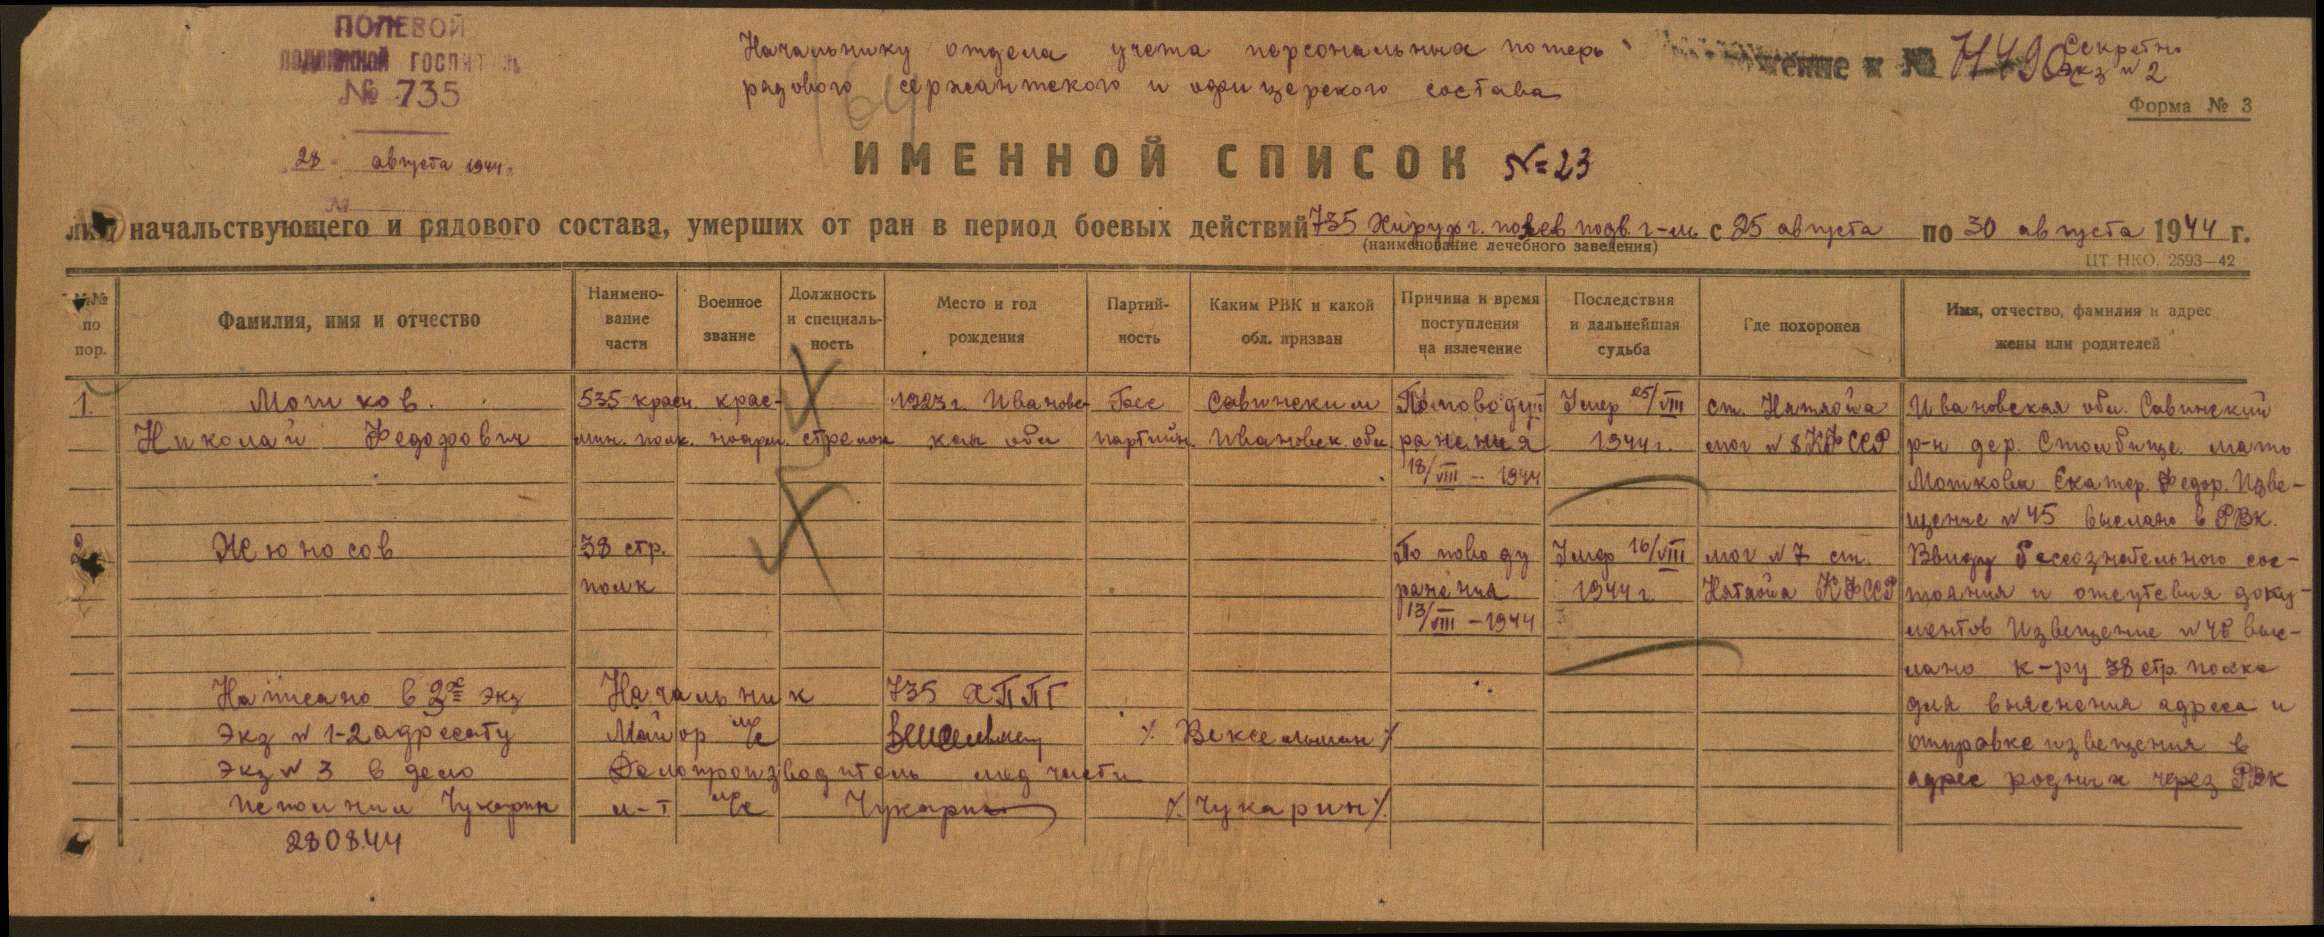 ПОЛЕВОЙ
ПОДВИЖНОЙ ГОСПИТ
№ 735
28 августа 1944г.
№
Начальнику отдела учета персональных потерь
рядового сержантского и офицерского состава
жение к №
Секретно
Экз № 2
Форма № 3
ИМЕННОЙ СПИСОК №=23
лиц начальствующего и рядового состава, умерших от ран в период боевых действий 735 Хирург. полев подв. г-ль с 25 августа по 30 августа 1944 г.
(наименование лечебного заведения)
ЦТ НКО. 2593—42
№№ по пор.
Фамилия, имя и отчество
Наименование части
Военное звание
Должность и специальность
Место и год рождения
Партийность
Каким РВК и какой обл. призван
Причина и время поступления на излечение
Последствия и дальнейшая судьба
Где похоронен
Имя, отчество, фамилия и адрес жены или родителей
1. Мотков. 535 красн. крас- 1923 г. Ивановс- Бес Савинским По поводу Умер 25/VIII ст. Нятяоја Ивановская обл. Савинский
Николай Федорович мин. полк. ноарм. стрелок кая обл партийн. Ивановск. обл ранения 1944 г. мог № 8 КФССР р-н дер. Столбище мать
18/VIII – 1944 Моткова Екатер. Федор. Изве-
щение № 45 выслано в РВК.
2 Жюносов 38 стр. По поводу Умер 16/VIII мог № 7 ст. Ввиду бессознательного сос-
полк ранения 1944 г Нятяоја КФССР тояния и отсутствия доку-
13/VIII – 1944 ментов Извещение № 46 выс-
лано к-ру 38 стр. полка
Написано в 3х экз Начальник 735 ХППГ для выяснения адреса и
Экз № 1-2 адресату Майор м/с /. Вексельман / отправке извещения в
Экз № 3 в дело Делопроизводитель мед части адрес родных через РВК
Исполнил Чукарин л-т м/с Чукарин /. Чукарин /.
280844